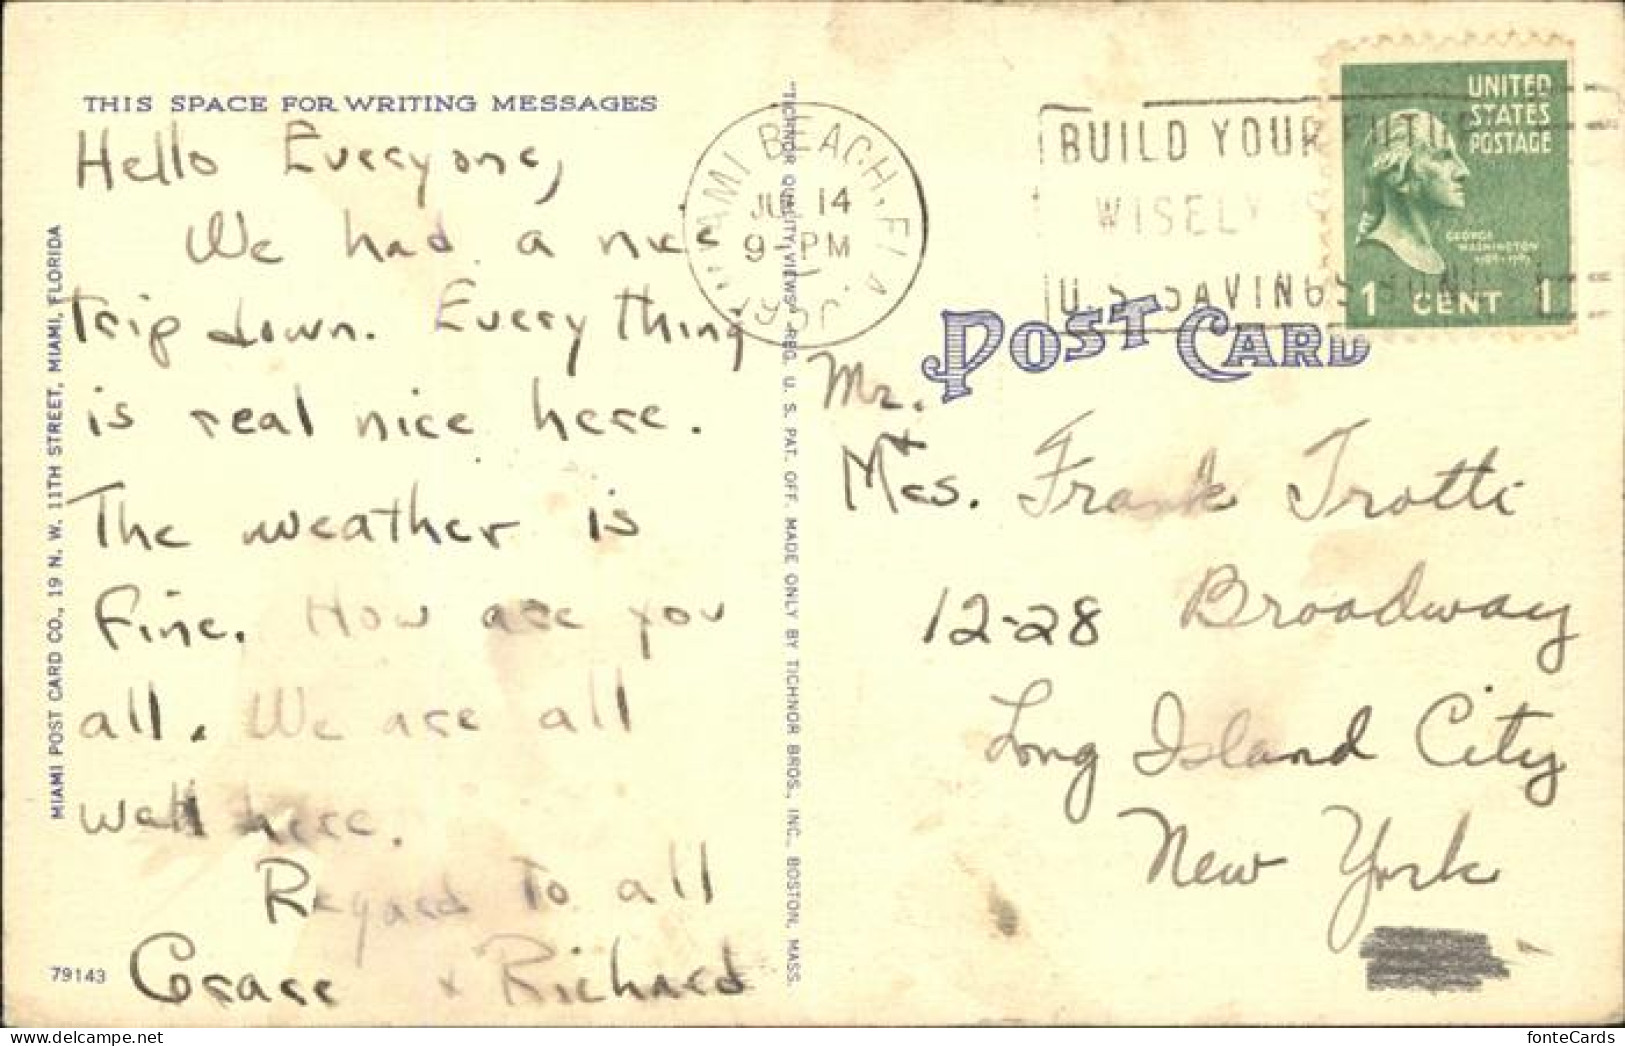 THIS SPACE FOR WRITING MESSAGES
Hello Everyone,
We had a nice
trip down. Every thing
is real nice here.
The weather is
fine. How are you
all. We are all
well here.
Regard to all
Grace + Richard
79143
MIAMI POST CARD CO., 19 N. W. 11TH STREET, MIAMI, FLORIDA
"TICHNOR QUALITY VIEWS" REG. U. S. PAT. OFF. MADE ONLY BY TICHNOR BROS., INC., BOSTON, MASS.
MIAMI BEACH, FLA.
14
9 - PM
BUILD YOUR FUTURE
WISELY
U.S. SAVINGS BONDS
UNITED
STATES
POSTAGE
GEORGE
WASHINGTON
1 CENT 1
POST CARD
Mr.
+
Mrs. Frank Trotti
12-28 Broadway
Long Island City
New York
fonteCards